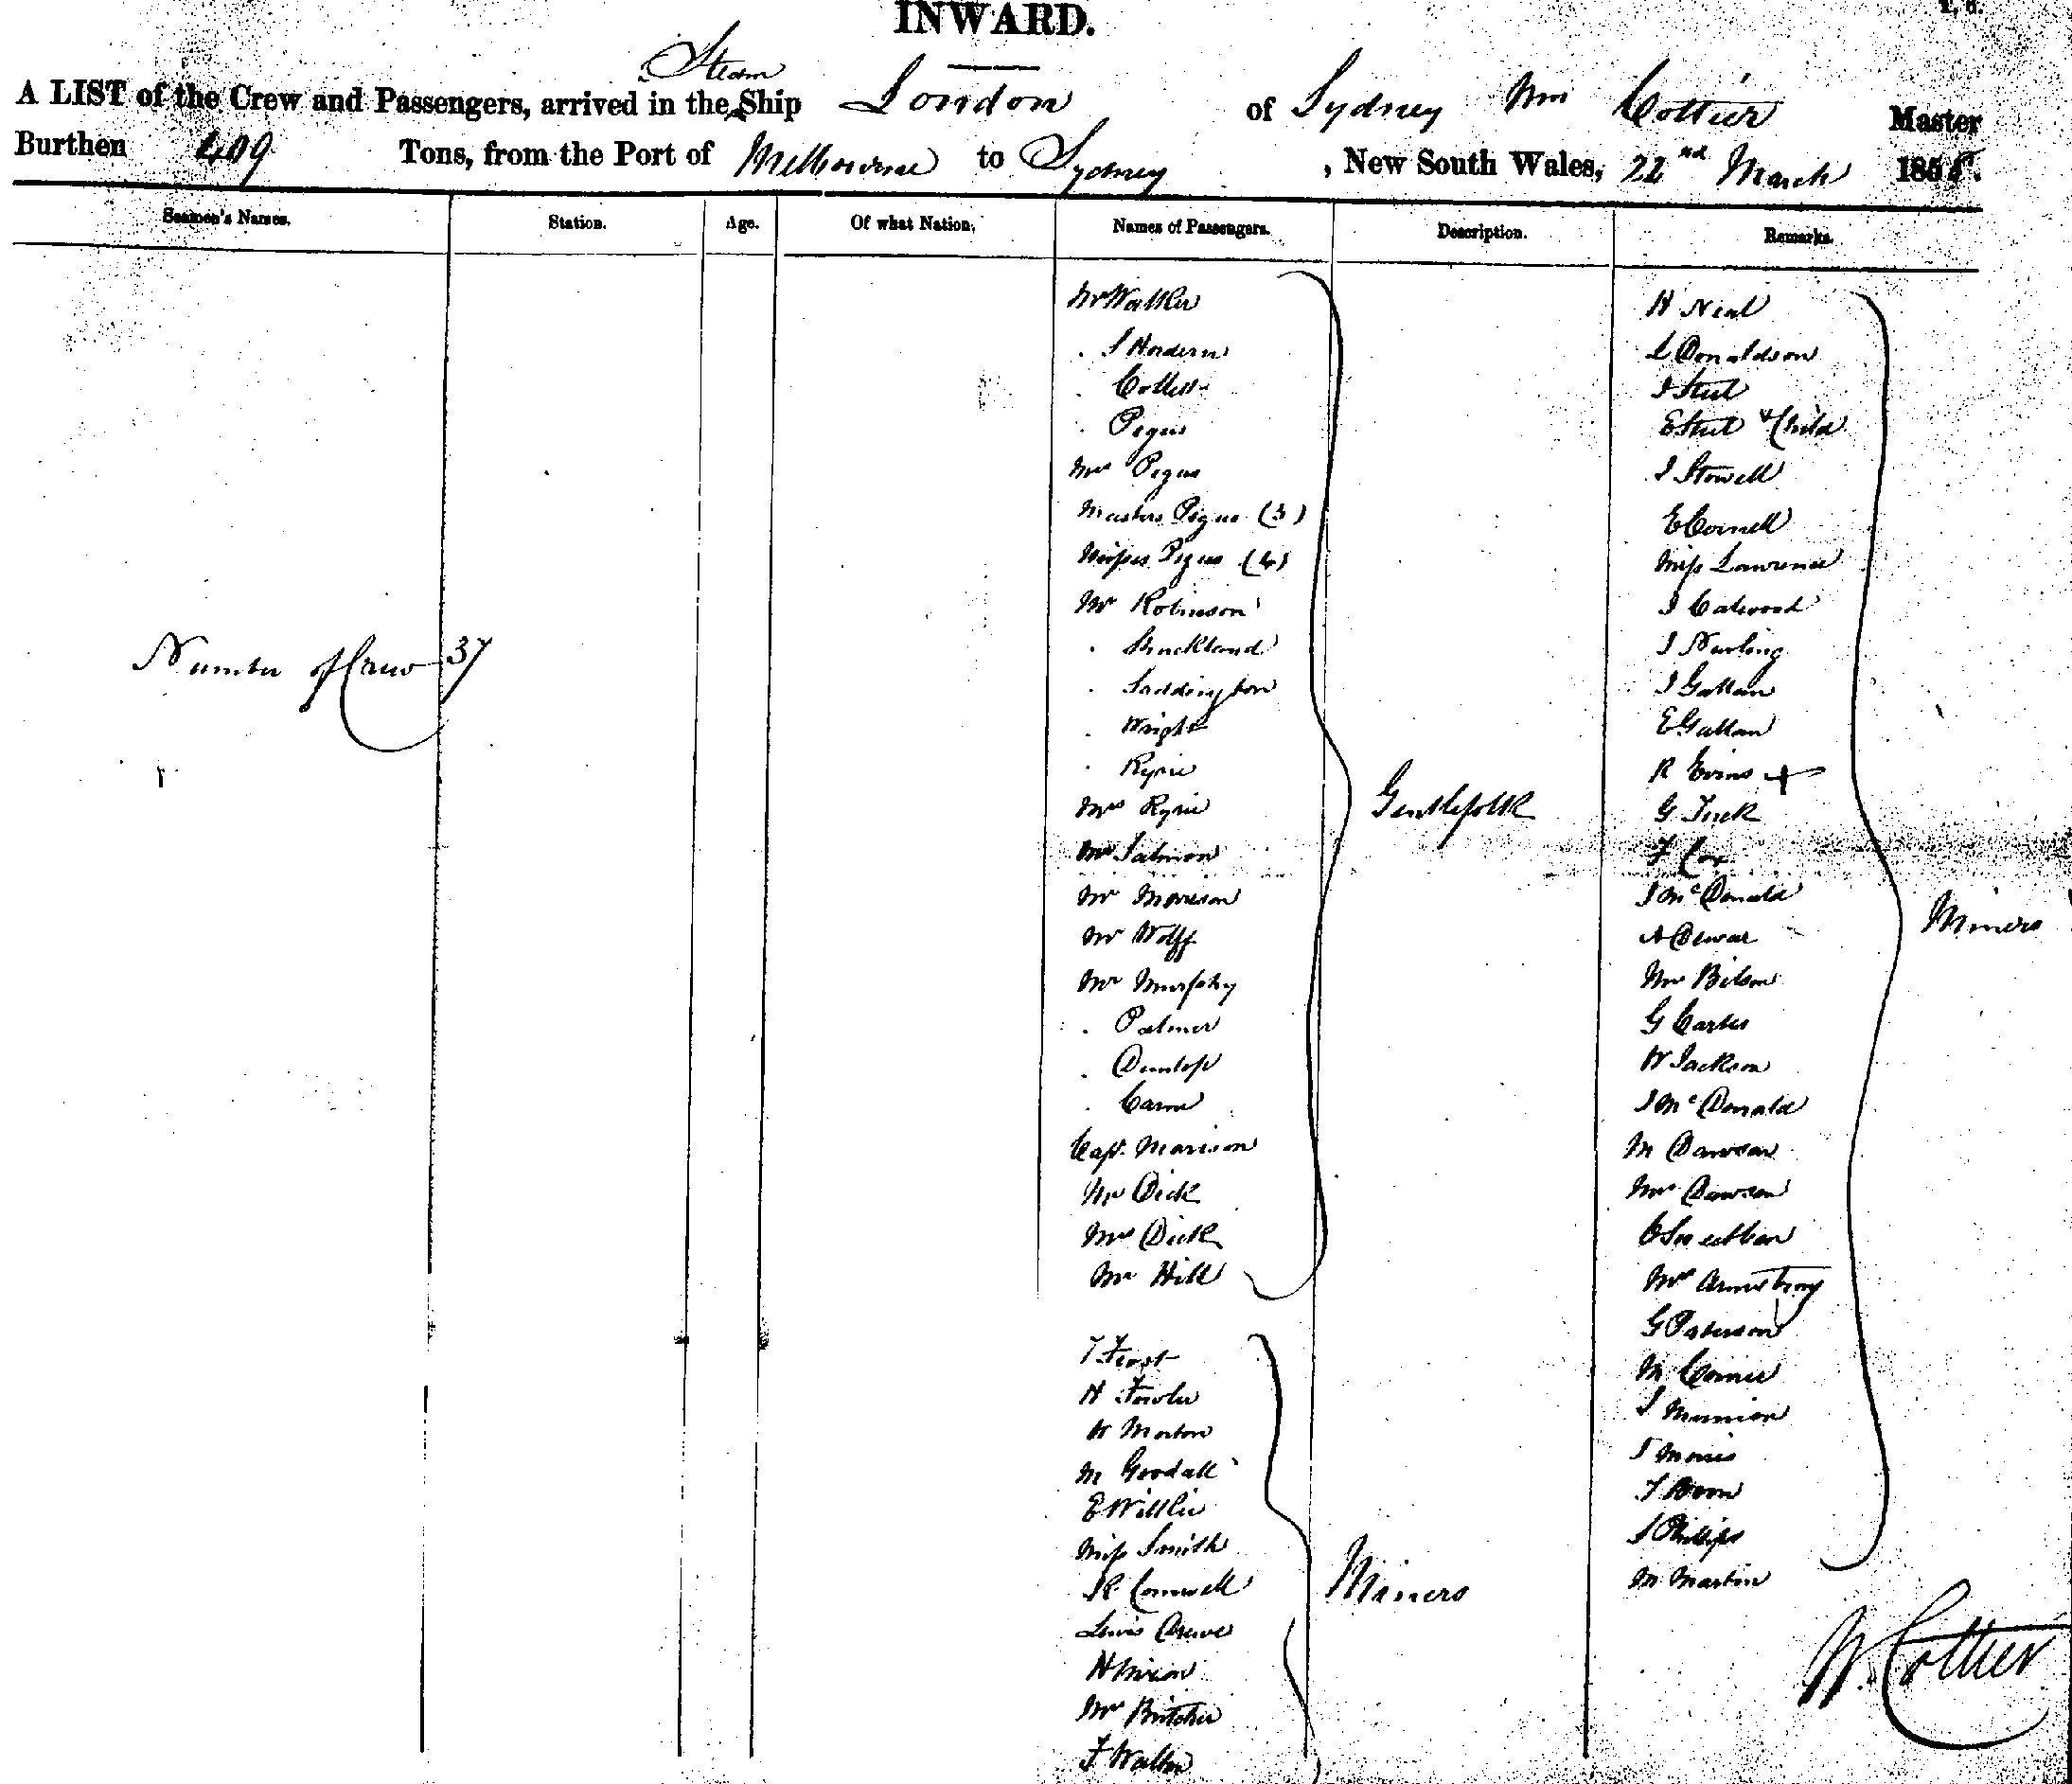 INWARD.
Steam
A LIST of the Crew and Passengers, arrived in the Ship London of Sydney Wm Cottier Master
Burthen 409 Tons, from the Port of Melbourne to Sydney, New South Wales, 22nd March 185
Seamen's Names. Station. Age. Of what Nation. Names of Passengers. Description. Remarks.
Number of Crew 37
Mr Walker
. S Hordern
. Collett
. Pegus
Mrs Pegus
Masters Pegus (3)
Misses Pegus (4)
Mr Robinson
. Shuckland
. Saddington
. Wright
. Ryrie
Mrs Ryrie
Mr Salmon
Mr Morrison
Mr Wolff
Mr Murphy
. Palmer
. Dunlop
. Carne
Capt. Marison
Mr Dick
Mrs Dick
Mr Hill
Gentlefolk
T Frost
H Fowler
W Morton
M Goodall
E Willie
Miss Smith
R Cornwell
Lewis
H Nixon
Mr Butcher
F Walter
Miners
H Neal
L Donaldson
J Steel
E Steel & Child
J Stowell
E Cornell
Miss Lawrence
J Calwood
J Nurling
J Gallan
E Gallan
R Evins
G Tuck
F Cox
J McDonald
A Dewar
Mr Bilson
G Carter
W Jackson
J McDonald
M Dawson
Mrs Dawson
C
Mrs Armstrong
G Paterson
M Cornie
J Munnion
J Morris
T
J Phillips
M Martin
Miners
W. Cottier